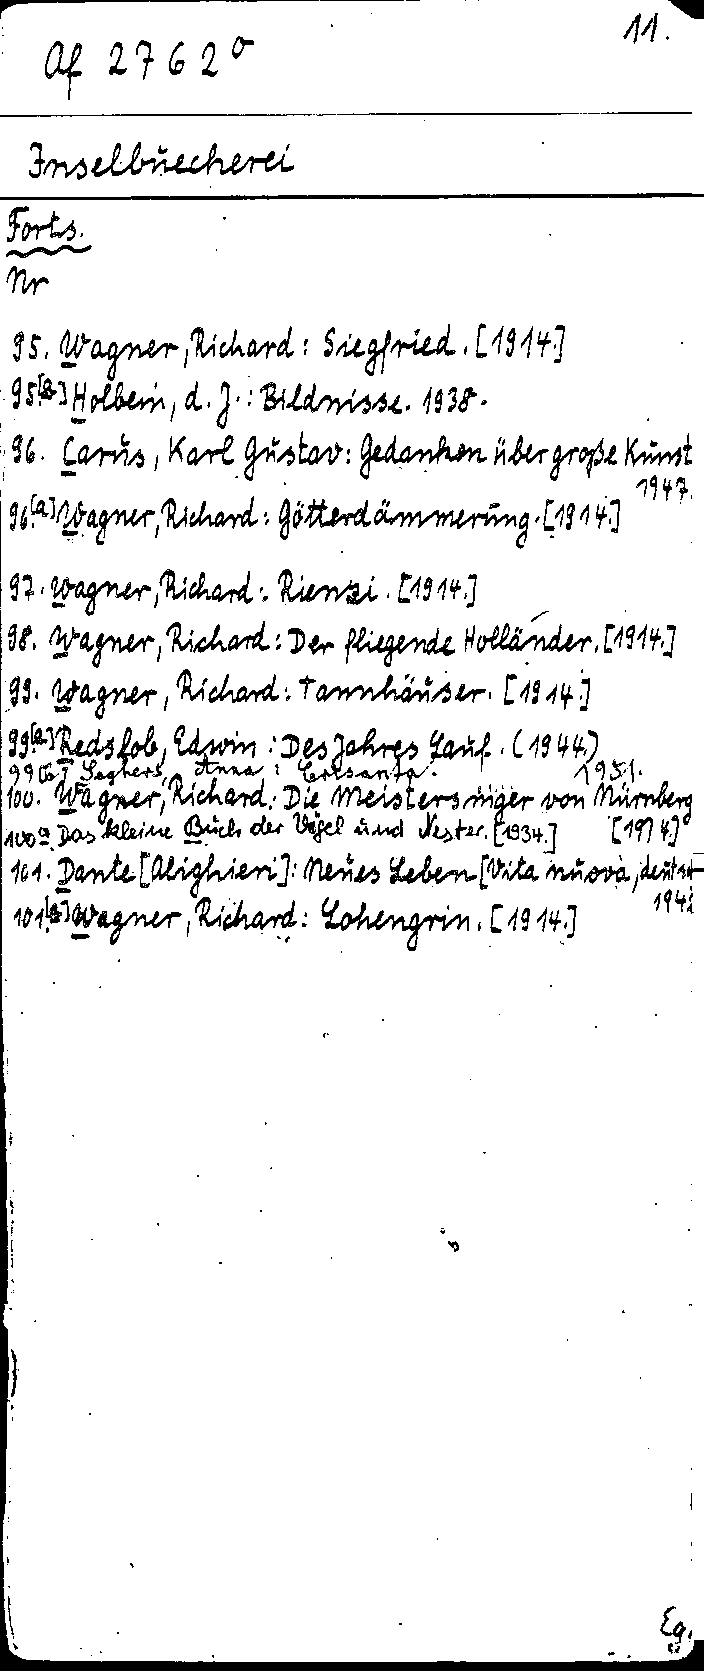 11.
Af 2762⁰
Inselbuecherei
Forts.
Nr
95. Wagner, Richard: Siegfried. [1914.]
95[a] Holbein, d. J.: Bildnisse. 1938.
96. Carus, Karl Gustav: Gedanken über große Kunst
1947.
96.[a] Wagner, Richard: Götterdämmerung. [1914.]
97. Wagner, Richard: Rienzi. [1914.]
98. Wagner, Richard: Der fliegende Holländer. [1914.]
99. Wagner, Richard: Tannhäuser. [1914.]
99[a] Redslob, Edwin: Des Jahres Lauf. (1944.)
99[b] Seghers, Anna: Crisanta. 1951.
100. Wagner, Richard: Die Meistersinger von Nürnberg
[1914]
100a Das kleine Buch der Vögel und Nester. [1934.]
101. Dante [Alighieri]: Neues Leben [Vita nuova, deutsch
101[a] Wagner, Richard: Lohengrin. [1914.]
Eg.